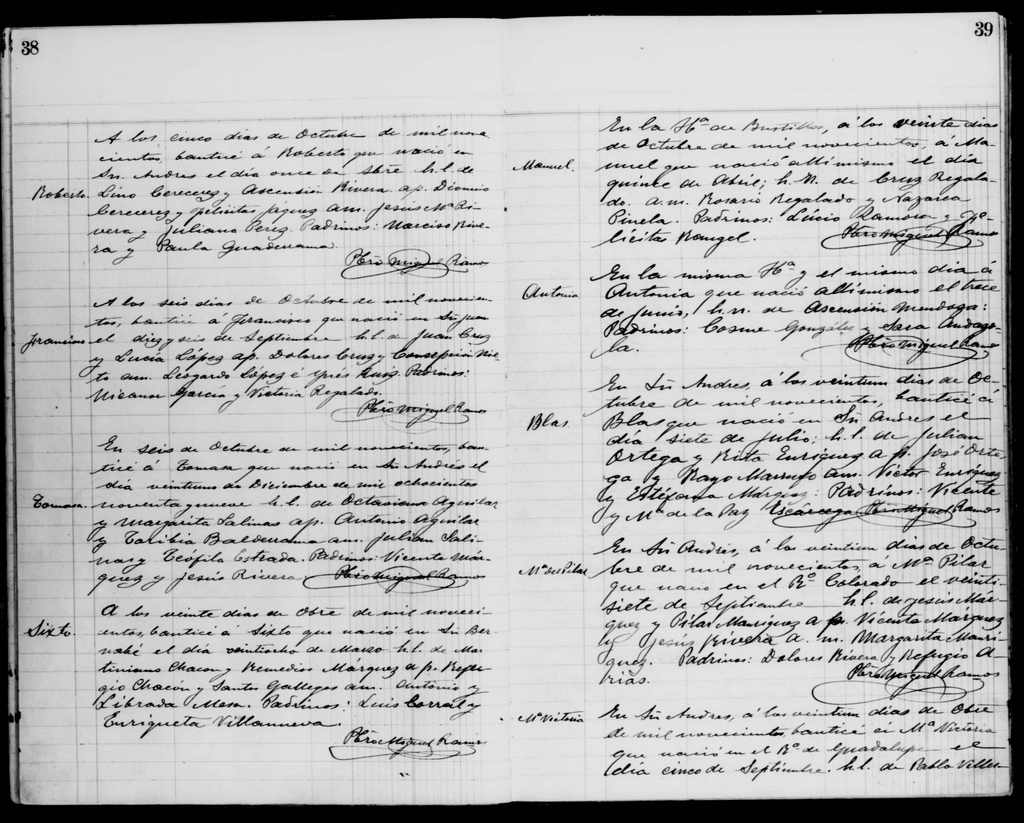 38
A los cinco dias de Octubre de mil nove
cientos, bauticé á Roberto que nació en
Sn. Andres el día once de Sbre h.l. de
Roberto. Lino Cereceres y Ascensión Rivera a.p. Dionicio
Cerecerez y Felicitas Jaquez a.m. Jesús Mª Ri-
vera y Juliana Perez. Padrinos: Narciso Rive-
ra y Paula Guaderrama.
Pbro Miguel Ramos
A los seis dias de Octubre de mil novecien-
tos, bautice a Francisco que nació en Sn Juan
Francisco el diez y seis de Septiembre h.l. de Juan Cruz
y Lucia López a.p. Dolores Cruz y Concepción Nie-
to a.m. Leogardo López é Ynés Ruiz. Padrinos:
Nicanor García y Victoria Regalado.
Pbro Miguel Ramos
En seis de Octubre de mil novecientos, bau-
ticé á Tomasa que nació en Sn Andrés el
día veintiuno de Diciembre de mil ochocientos
Tomasa. noventa y nueve h.l. de Octaviano Aguilar
y Margarita Salinas a.p. Antonio Aguilar
y Toribia Balderrama a.m. Julian Sali-
nas y Teófila Estrada. Padrinos: Vicente Már-
quez y Jesús Rivera. Pbro Miguel Ramos
A los veinte dias de Obre de mil noveci-
Sixto. entos, bauticé a Sixto que nació en Sn Ber-
nabé el día veintiocho de Marzo h.l. de Mar-
tiniano Chacon y Remedios Márquez a.p. Refu-
gio Chacón y Santos Gallegos a.m. Antonio y
Librada Mesa. Padrinos: Luis Corral y
Enriqueta Villanueva.
Pbro Miguel Ramos
39
En la Hª de Bustillos, á los veinte dias
de Octubre de mil novecientos, á Ma-
Manuel. nuel que nació allí mismo el día
quince de Abril; h.N. de Cruz Regala-
do. a.m. Rosario Regalado y Nazaria
Pinela. Padrinos: Livio Zamora y Fe-
lícitas Rangel. Pbro Miguel Ramos
En la misma Hª y el mismo día á
Antonia Antonia que nació allí mismo el trece
de Junio, h.n. de Ascensión Mendoza:
Padrinos: Cosme González y Sara Andazo-
la. Pbro Miguel Ramos
En Sn Andres, á los veintiun dias de Oc-
tubre de mil novecientos, bauticé á
Blas. Blas que nació en Sn Andres el
día siete de Julio; h.l. de Julian
Ortega y Rita Enriquez a.p. José Orte-
ga y Marrufo a.m. Victor Enriquez
y Estéfana Marquez: Padrinos: Vicente
y Mª de la Paz Escárcega. Pbro Miguel Ramos
En Sn Andrés, á los veintiun dias de Octu-
Mª del Pilar bre de mil novecientos, a Mª Pilar
que nació en el Rº Colorado el veinti-
siete de Septiembre h.l. de Jesús Mar-
quez y Pilar Manriquez a.p. Vicenta Márquez
y Jesús Rivera a.m. Margarita Manri-
quez. Padrinos: Dolores Rivera y Refugio A-
rias. Pbro Miguel Ramos
Mª Victoria En Sn Andres, á los veintiun dias de Obre
de mil novecientos, bauticé á Mª Victoria
que nació en el Rº de Guadalupe el
día cinco de Septiembre. h.l. de Pablo Villa-